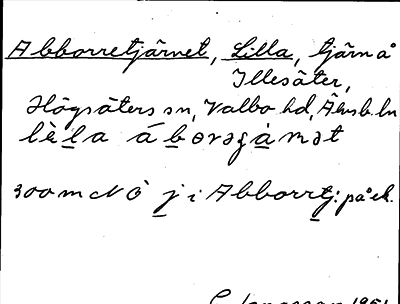 Abborretjärnet, Lilla, tjärn å
Illesäter,
Högsäters sn, Valbo hd, Älvsb. ln
lèla ábərəgànət
300 m N Ö j i Abborrtj: på ek.
1951